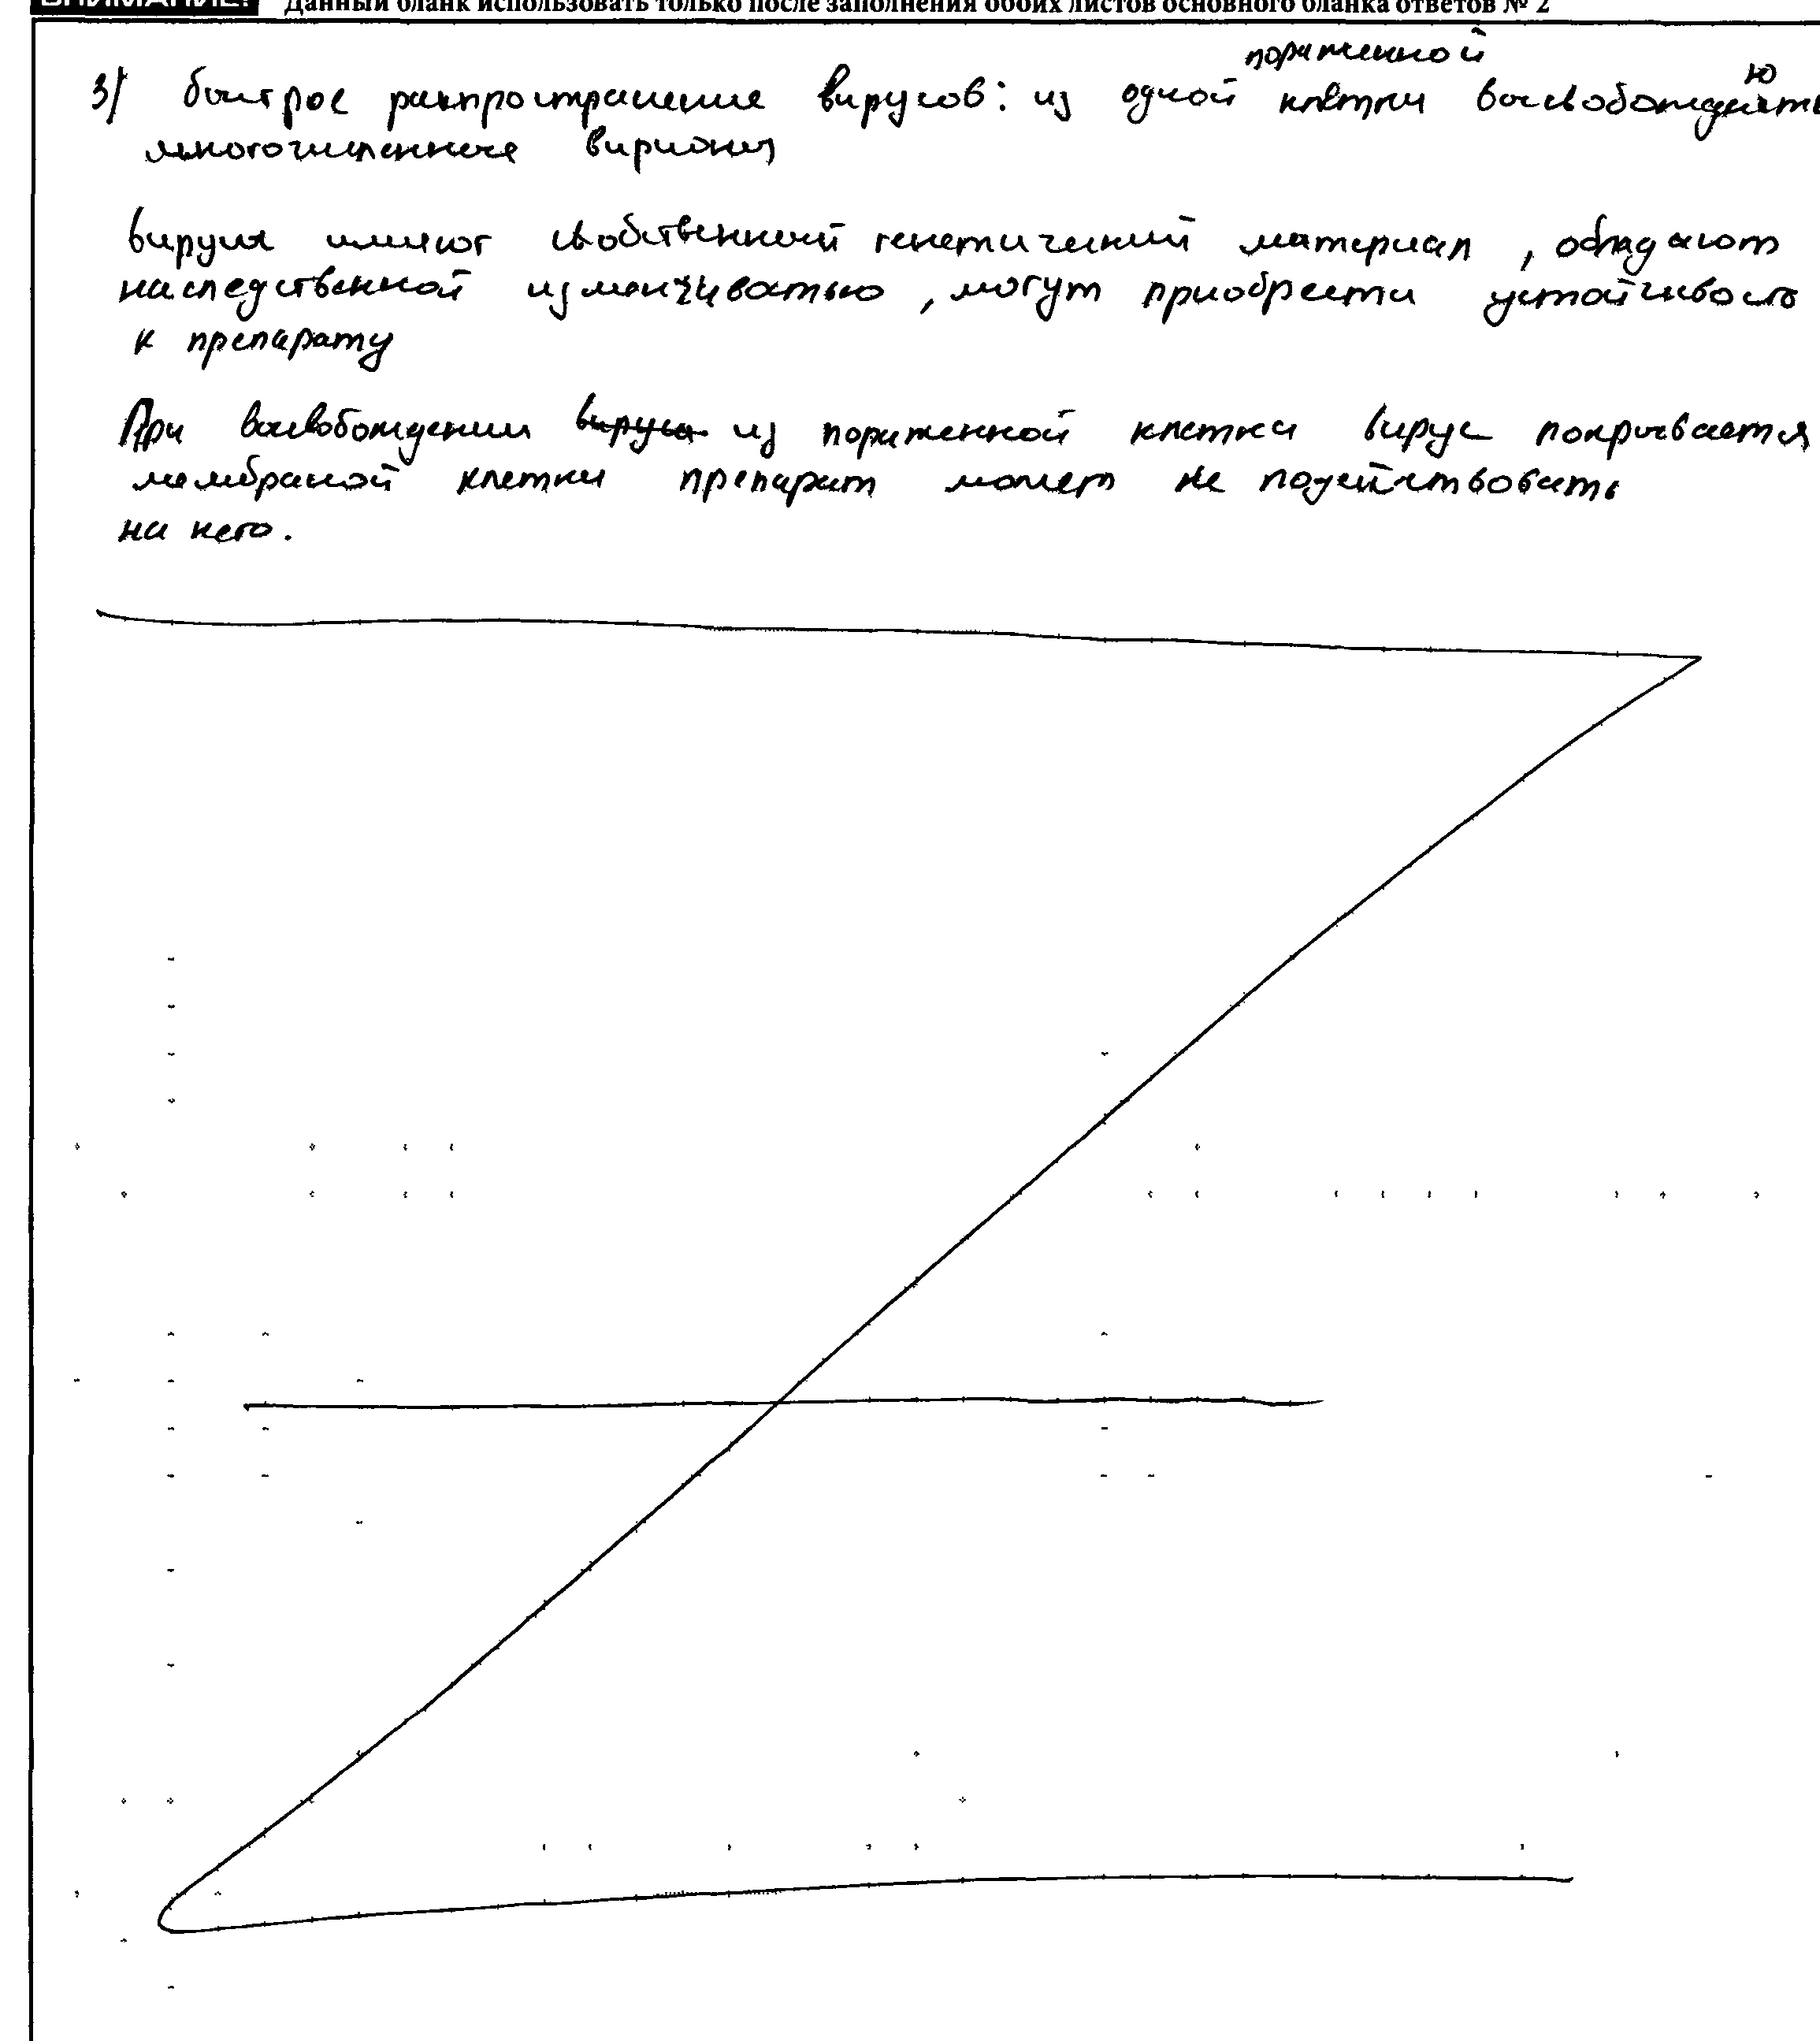 ВНИМАНИЕ! Данный бланк использовать только после заполнения обоих листов основного бланка ответов № 2
пораженной
3) быстрое распространение вирусов: из одной клетки
многочисленные вирионы
вирусы имеют собственный генетический материал, обладают
наследственной изменчивостью, могут приобрести устойчивость
к препарату
При высвобождении вируса из пораженной клетки вирус покрывается
мембраной клетки препарат может не подействовать
на него.